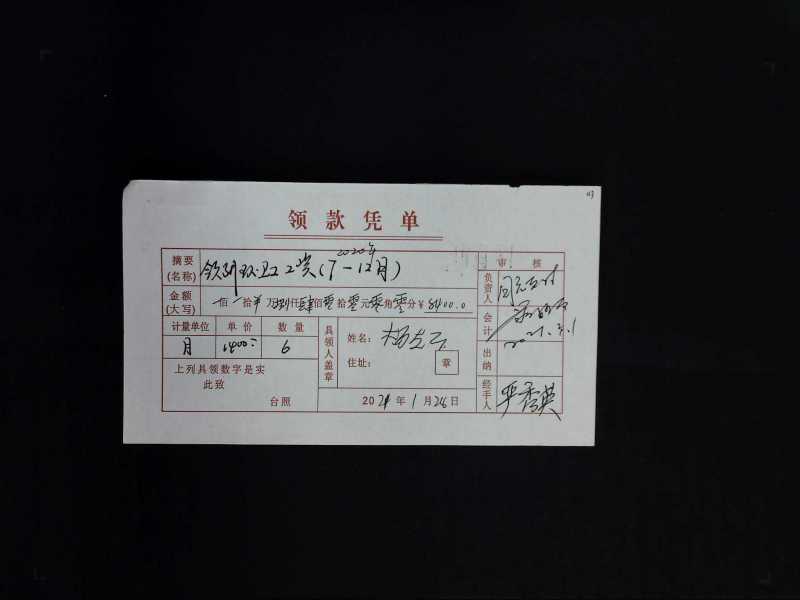 43
领款凭单
2020年
摘要(名称) 领到环卫工资(7-12月)
审核
金额(大写) 佰 拾 万捌仟肆佰零拾零元零角零分 ¥8400.0
负责人
会计
计量单位 单价 数量
月 1400 6
具领人盖章 姓名: 住址: 章
2021.2.1
出纳
上列具领数字是实
此致
台照
2021年1月26日
经手人 严秀英